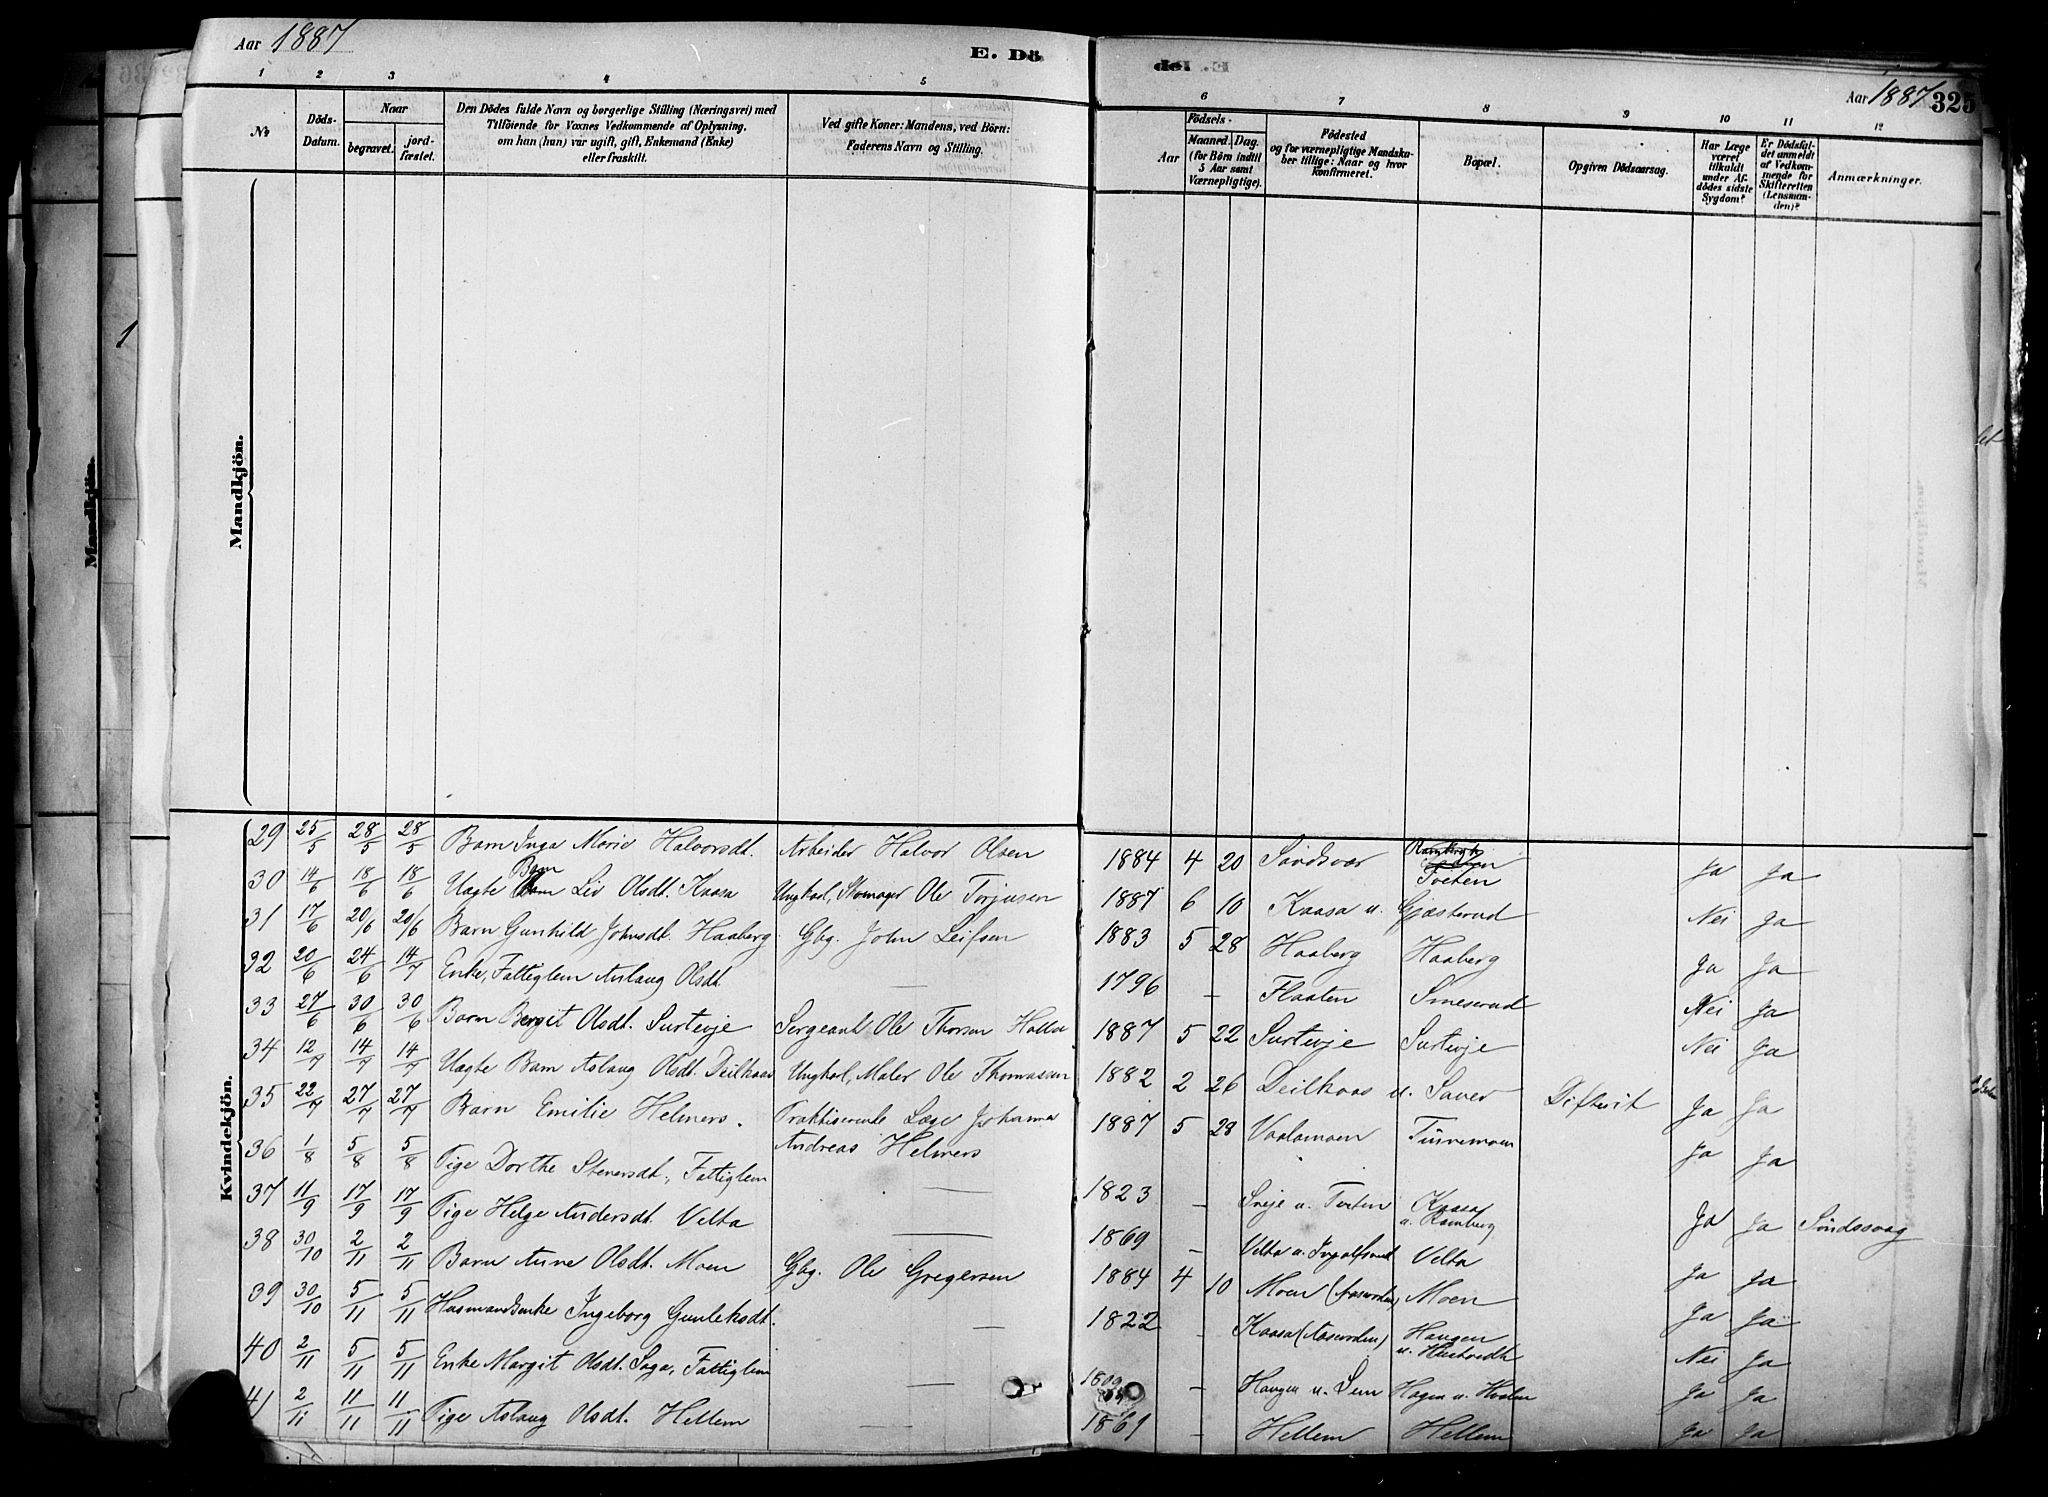 Aar 1887
E. Dö
del
Aar 1887 325
1 2 3 4 5 6 7 8 9 10 11 12
№
Döds-Datum.
Naar
begravet.
jord-fæstet.
Den Dödes fulde Navn og borgerlige Stilling (Næringsvei) med
Tilföiende for Voxnes Vedkommende af Oplysning,
om han (hun) var ugift, gift, Enkemand (Enke)
eller fraskilt.
Ved gifte Koner: Mandens, ved Börn:
Faderens Navn og Stilling.
Födsels-
Aar
Maaned. Dag.
(for Börn indtil
5 Aar samt
Værnepligtige).
Födested
og for værnepligtige Mandska-
ber tillige: Naar og hvor
konfirmeret.
Bopæl.
Opgiven Dödsaarsag.
Har Læge
været
tilkaldt
under Af-
dödes sidste
Sygdom?
Er Dödsfal-
det anmeldt
af Vedkom-
mende for
Skifteretten
(Lensman-
den)?
Anmærkninger.
Mandkjön.
Kvindekjön.
29 25/5 28/5 28/5 Barn Inga Marie Halvorsdt. Arbeider Halvor Olsen 1884 4 20 Sandsvær Tveten Ja Ja
30 14/6 18/6 18/6 Uægte Barn Liv Olsdt. Kaasa Ungkarl, Skomager Ole Torjusen 1887 6 10 Kaasa u. Gjæsterud Nei Ja
31 17/6 20/6 20/6 Barn Gunhild Johnsdt. Haaberg. Gbg. John Leifsen 1883 5 28 Haaberg Haaberg Ja Ja
32 20/6 24/6 14/7 Enke, Fattiglem Aslaug Olsdt — 1796 — Flaaten Smeserud Nei Ja
33 27/6 30/6 30/6 Barn Bergit Olsdt. Surtevje Sergeant Ole Thorsen 1887 5 22 Surtevje Surtevje Nei Ja
34 12/7 14/7 14/7 Uægte Barn Aslaug Olsdt. Deilkaas Ungkarl, Maler Ole Thomassen 1882 2 26 Deilkaas u. Sauer Difterit Ja Ja
35 22/7 27/7 27/7 Barn Emilie Helmers. Praktiserende Læge Johannes
Andreas Helmers 1887 5 28 Vaalamoen Tinnemoen Ja Ja
36 1/8 5/8 5/8 Tige Dorthe Stenersdt., Fattiglem — 1823 — Sveje u. Tveten Kaasa
u. Ramberg Ja Ja Sindssvag
37 11/9 17/9 17/9 Pige Helge Andersdt. Velta — 1869 — Velta u. Velta Ja Ja
38 30/10 2/11 2/11 Barn Anne Olsdt. Moen Gbg. Ole Gregersen 1884 4 10 Moen Moen Ja Ja
39 30/10 5/11 5/11 Husmandsenke Ingeborg Gunleksdt. — 1822 - Kaasa Haugen
u. Nei Ja
40 2/11 5/11 5/11 Enke Margit Olsdt. Saga, Fattiglem — 1809 — Haugen u. Sem Hagen u. Ja Ja
41 2/11 11/11 11/11 Pige Aslaug Olsdt. Hellem — 1869 - Hellem Hellem Ja Ja